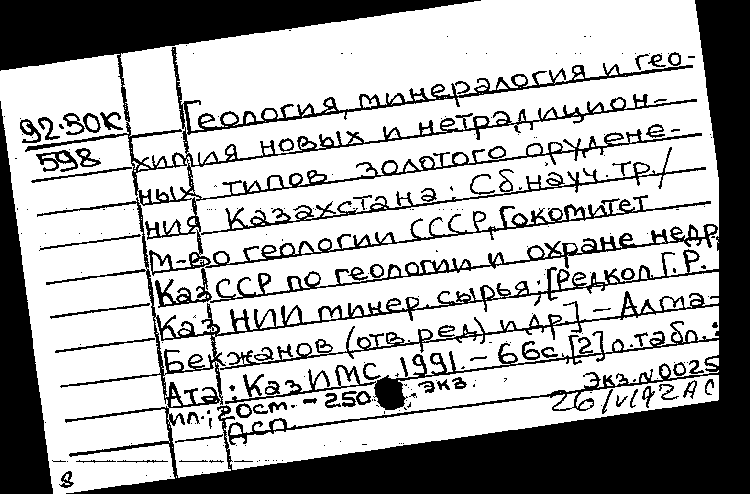 92.80К
598
Геология, минералогия и гео-
химия новых и нетрадицион-
ных типов золотого орудене-
ния Казахстана: Сб.науч.тр./
М-во геологии СССР, Гокомитет
КазССР по геологии и охране недр,
Каз НИИ минер. сырья; [Редкол Г.Р.
Бекжанов (отв.ред) и др.] – Алма-
Ата: КазИМС, 1991. – 66с, [2] л. табл.:
ил.; 20см. – 250 экз.
Экз. N0025
ДСП.
8